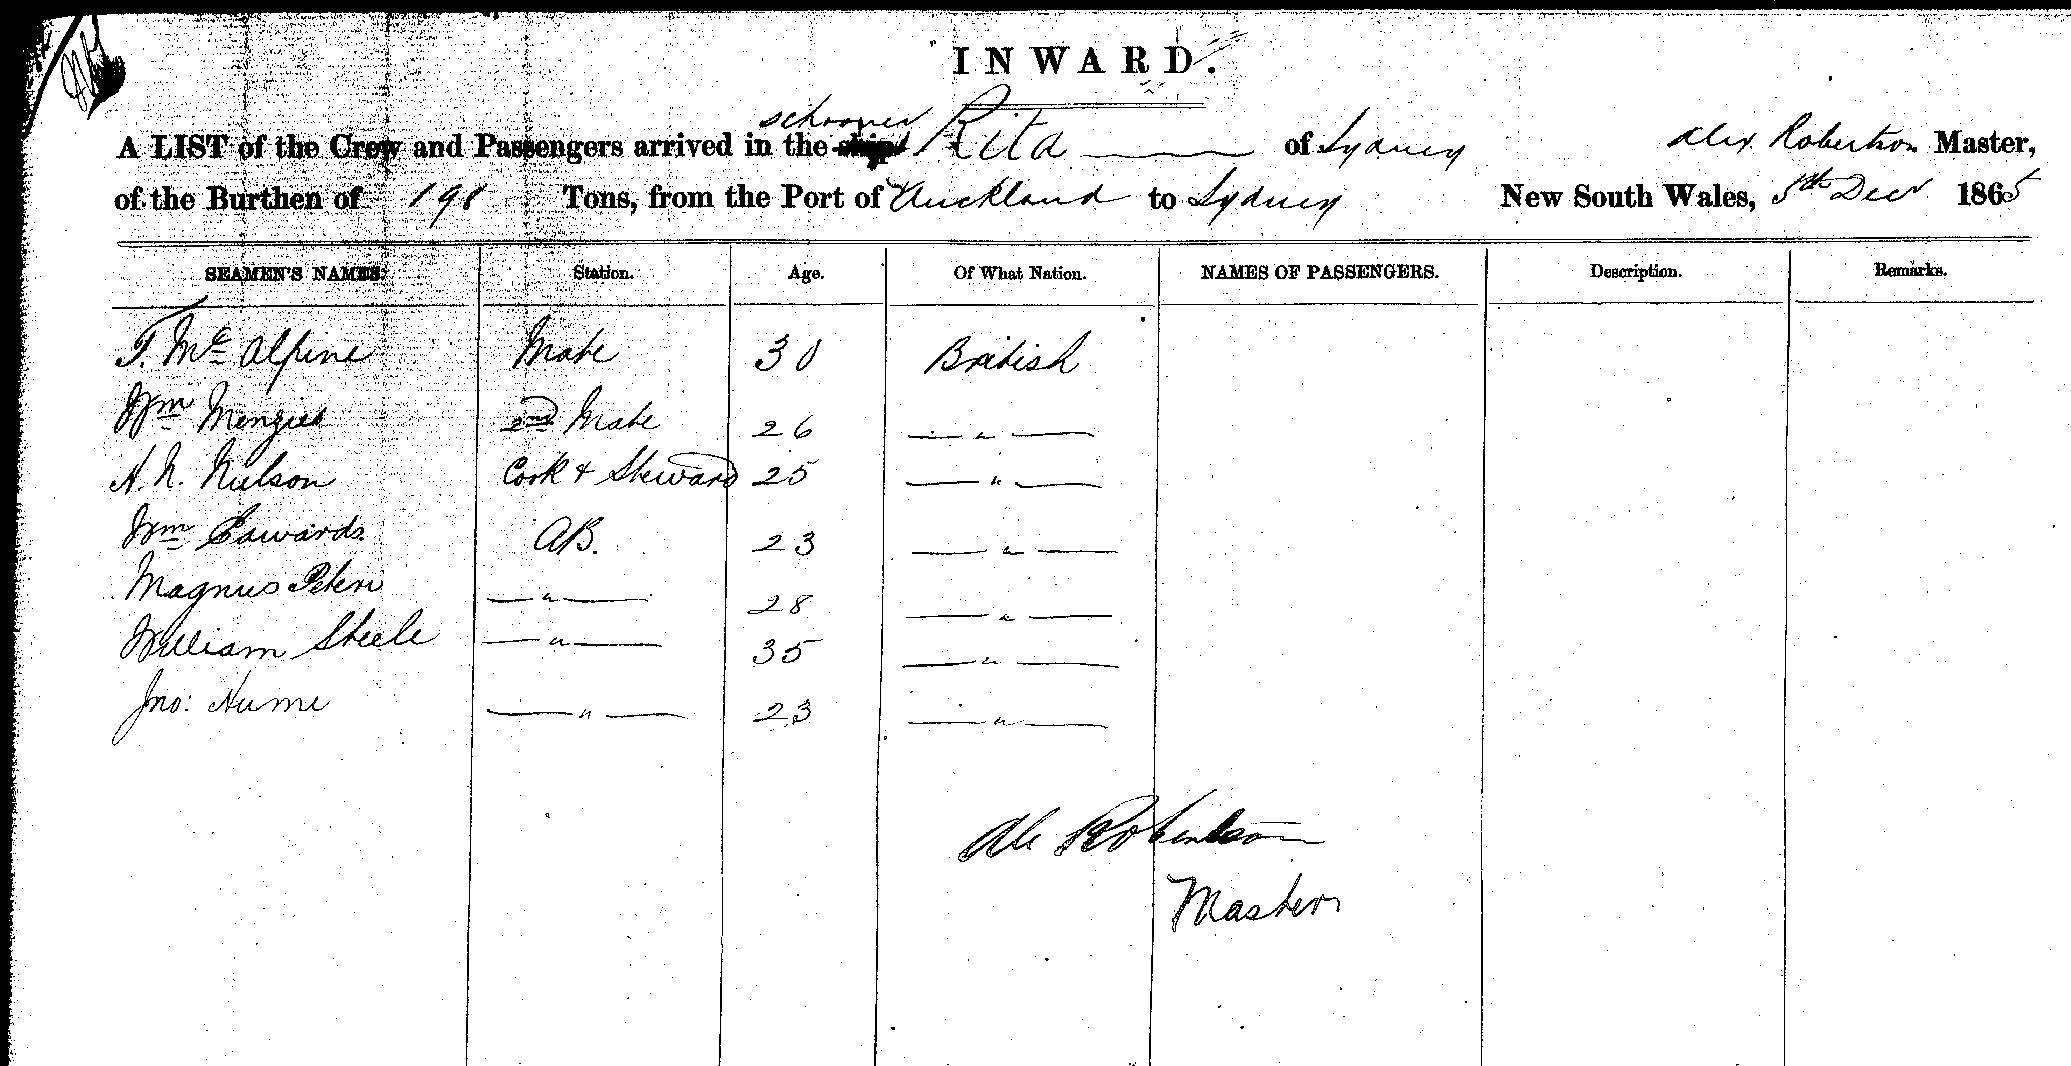 INWARD.
schooner
A LIST of the Crew and Passengers arrived in the ship Rita of Sydney Alex Robertson Master,
of the Burthen of 198 Tons, from the Port of Auckland to Sydney New South Wales, 5th Decr 1865
SEAMEN'S NAMES. Station. Age. Of What Nation. NAMES OF PASSENGERS. Description. Remarks.
T. Mc Alpine Mate 30 British
Wm Menzies 2nd Mate 26 — " —
A. N. Neilson Cook & Steward 25 — " —
Wm Edwards AB. 23 — " —
Magnus Peters — " — 28 — " —
William Steele — " — 35 — " —
Jno: Hume — " — 23 — " —
Alx Robertson
Master